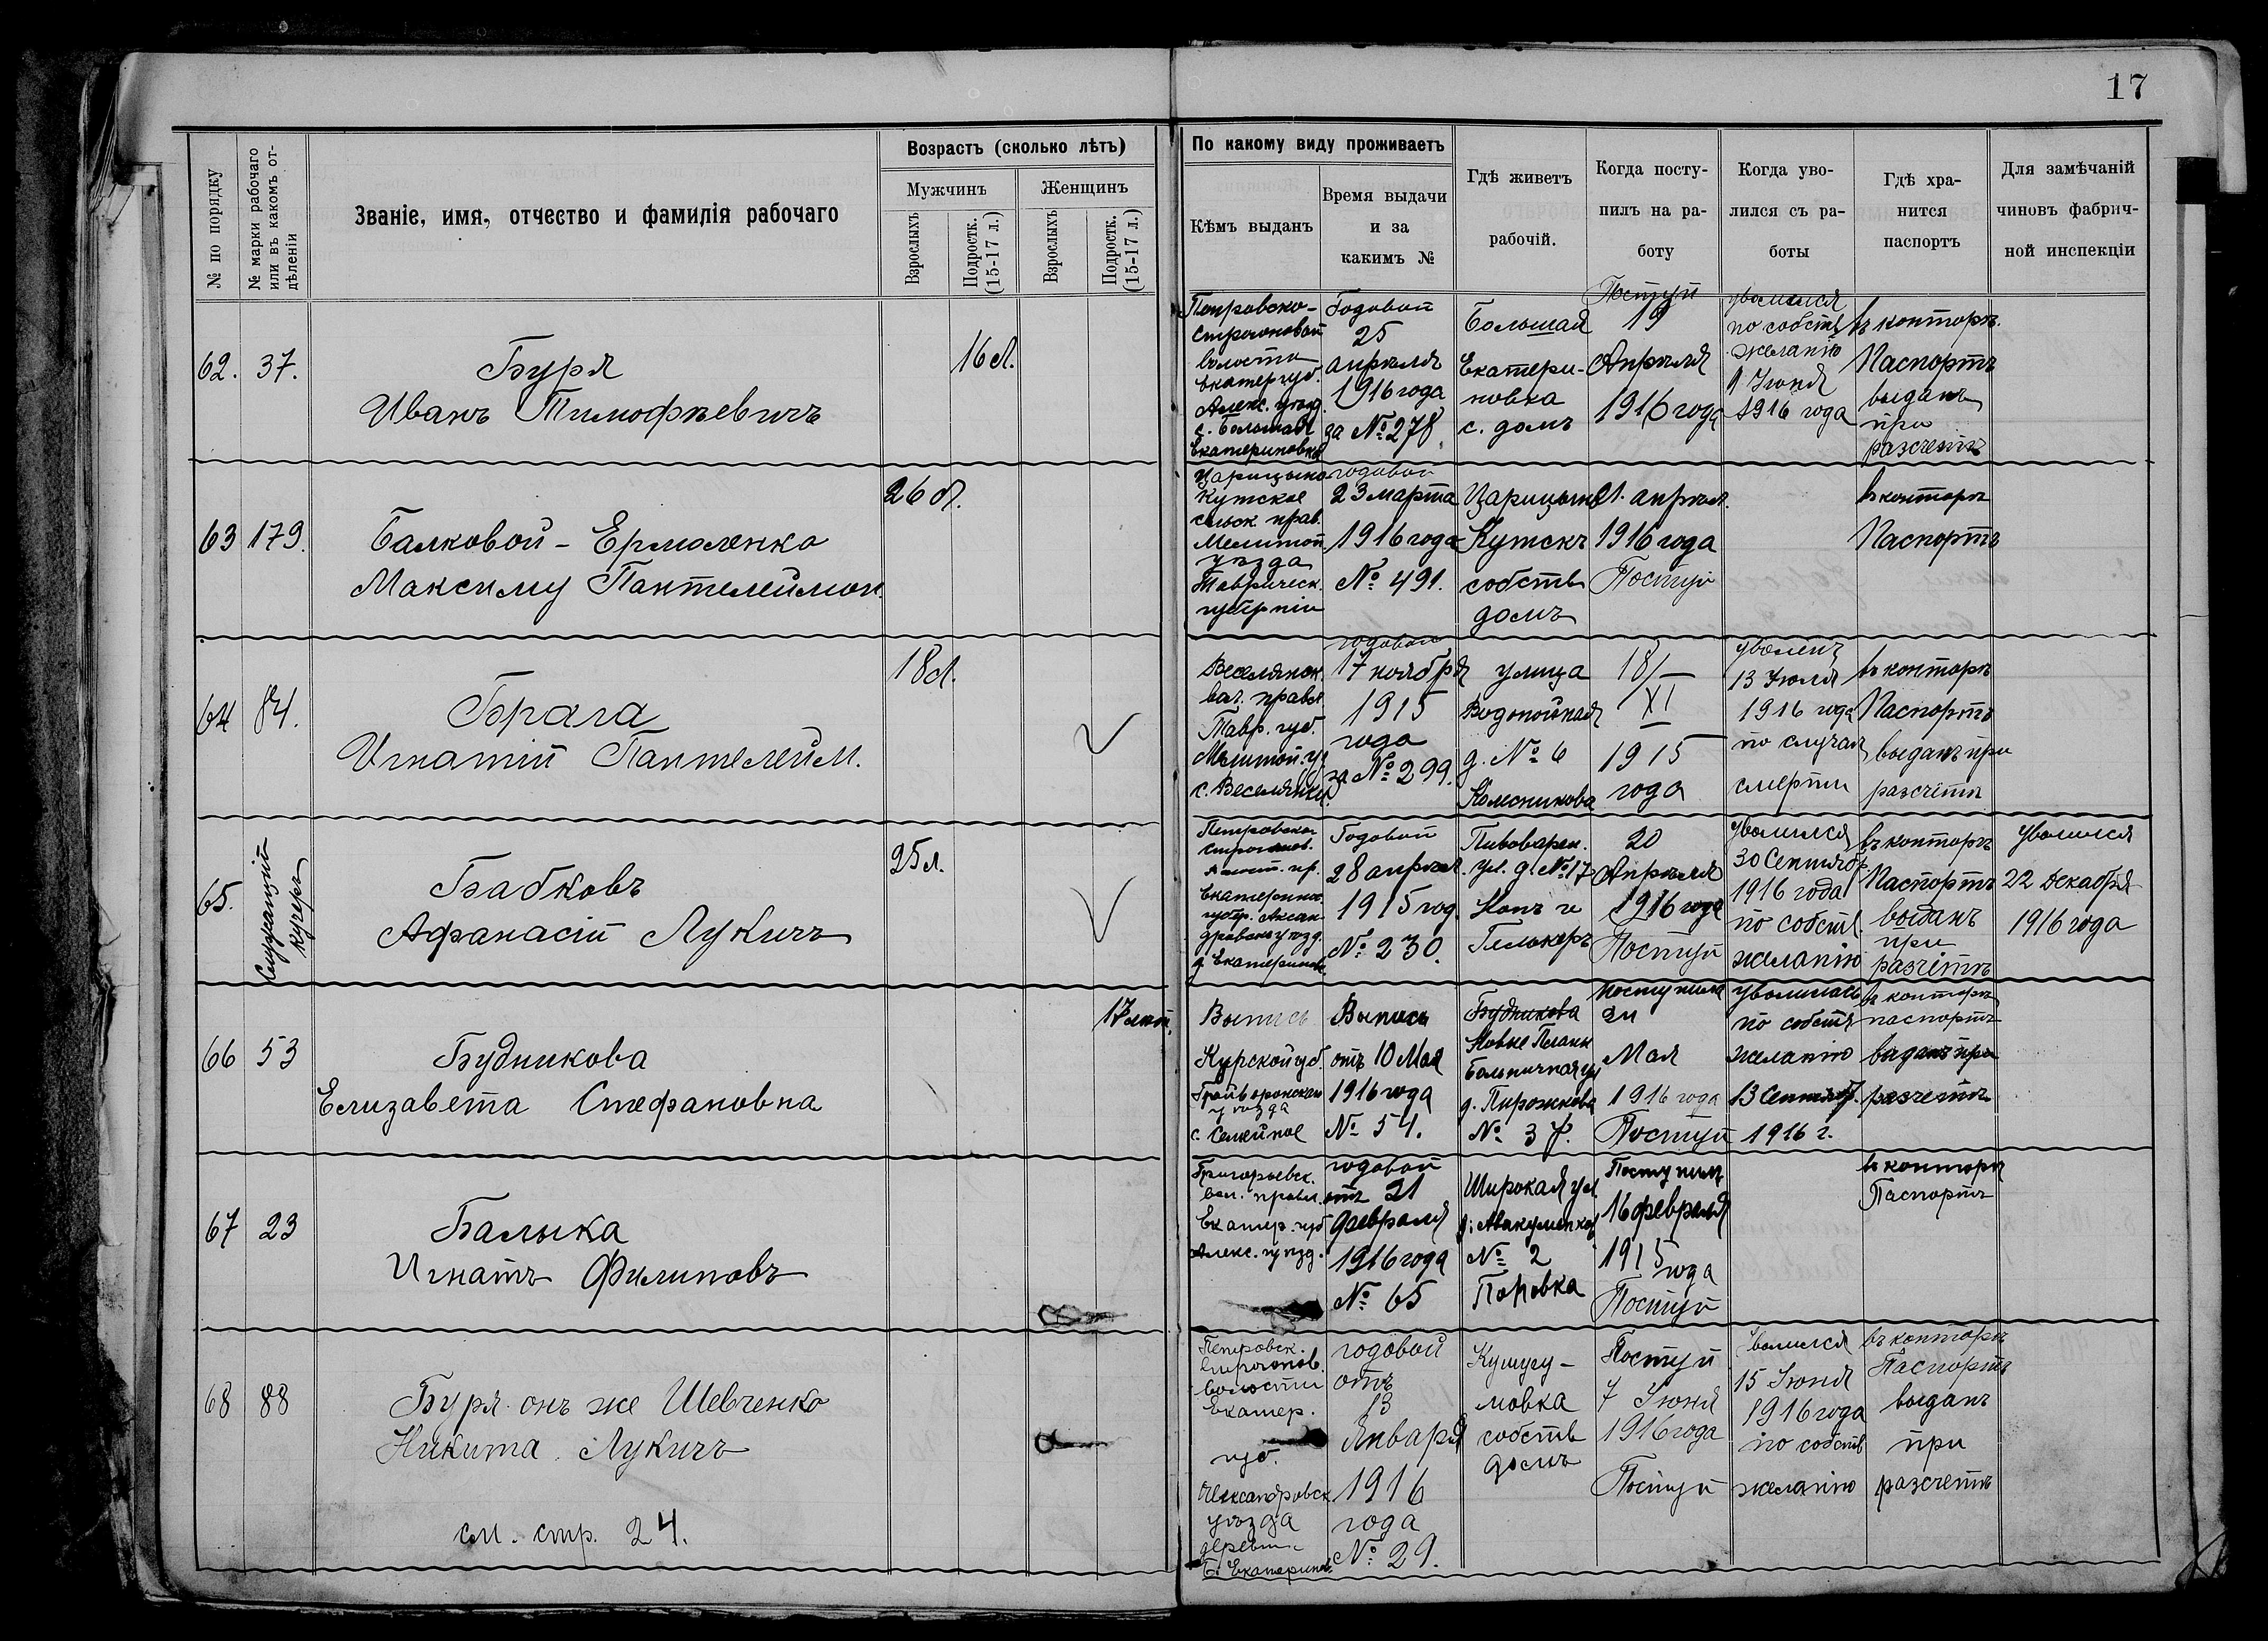 17
№ по порядку
№ марки рабочаго или въ какомъ от-дѣленіи
Званіе, имя, отчество и фамилія рабочаго
Возрастъ (сколько лѣтъ)
Мужчинъ
Женщинъ
Взрослыхъ
Подростк. (15-17 л.)
Взрослыхъ
Подростк. (15-17 л.)
По какому виду проживаетъ
Кѣмъ выданъ
Время выдачи
и за
какимъ №
Гдѣ живетъ
рабочій.
Когда посту-
пилъ на ра-
боту
Когда уво-
лился съ ра-
боты
Гдѣ хра-
нится
паспортъ
Для замѣчаній
чиновъ фабрич-
ной инспекціи
62.
37.
Буря
Иванъ Тимофѣевичъ
16 л.
Петровско-
Строгоновой
волости
Екатер губ.
Алекс. уѣзд.
с. Большая
Екатериновка
Годовой
25
апрѣля
1916 года
за № 278
Большая
Екатери-
новка
с. домъ
Поступ
19
Апрѣля
1916 года
уволился
по собств
желанію
1 Іюня
1916 года
въ конторѣ.
Паспортъ
выданъ
при
разсчетѣ
63
179.
Балковой - Ермоленко
Максиму Пантелеймон.
26 л.
Царицыно
Кутское
сельск прав.
Мелитоп
уѣзда
Таврическ.
губерніи
годовой
23 марта
1916 года
№ 491.
Царицыно
Кутскъ
собств
домъ
21. апрѣл.
1916 года
Поступ
въ конторѣ
Паспортъ
64
84.
Брага
Игнатій Пантелейм.
18 л.
Веселянск.
вол. правл
Тавр. губ.
Мелитоп. у.
с. Веселянка
годовой
17 ноября
1915
года
за № 299.
улица
Водопойная
д. № 6
Колесникова
18/
XI
1915
года
уволенъ
13 Іюля
1916 года
по случаю
смерти
въ конторѣ
Паспортъ
выданъ при
разсчетѣ
65.
Служащій
кучеръ
Бабковъ
Афанасій Лукичъ
25 л.
Петровско
Строганов.
волост. пр.
Екатеринос.
губер. Алексан-
дровск уѣзд.
д Екатериновк
Годовой
28 апрѣля
1915 год.
№ 230.
Пивоварен.
ул. д. № 17
Копъ и
Гелькеръ
20
Апрѣля
1916 года
Поступ
уволился
30 Сентябр
1916 года
по собств.
желанію
въ конторѣ
Паспортъ
выданъ
при
разчётѣ
Уволился
22 декабря
1916 года
66
53
Будникова
Елизавета Стефановна
17 лѣт.
Выпись
Курской губ.
Грайворонскаго
уѣзда
с. Солейное
Выпись
отъ 10 Мая
1916 года
№ 54.
Будникова
Новые Планы
Больничная ул
д. Пирожкова
№ 37.
поступила
Мая
1916 года
Поступ
уволилась
по собств
желанію
13 Сентябр.
1916 г.
въ конторѣ
паспортъ
выданъ при
разчетѣ
67
23
Балыка
Игнатъ Филиповъ
Григорьевск.
вол. правл.
Екатер. губ
Алекс. уѣзд.
годовой
отъ 21
февраля
1916 года
№ 65
Широкая ул
д. Авакуменкова
№ 2
Поповка
Поступилъ
16 февраля
1915
года
Поступ
въ конторѣ
Паспортъ
68
88
Буря онъ же Шевченко
Никита Лукичъ
см. стр. 24.
Петровск.
Строгонов.
волости
Екатер.
губ.
Александровск
уѣзда
деревн.
Б. Екатеринов.
годовой
отъ
13
Января
1916
года
№ 29.
Кушугу-
мовка
собств
домъ
Поступ
7 Іюня
1916 года
Поступ
Уволился
15 Іюня
1916 года
по собств
желанію
въ конторѣ
Паспортъ
выданъ
при
разсчетѣ